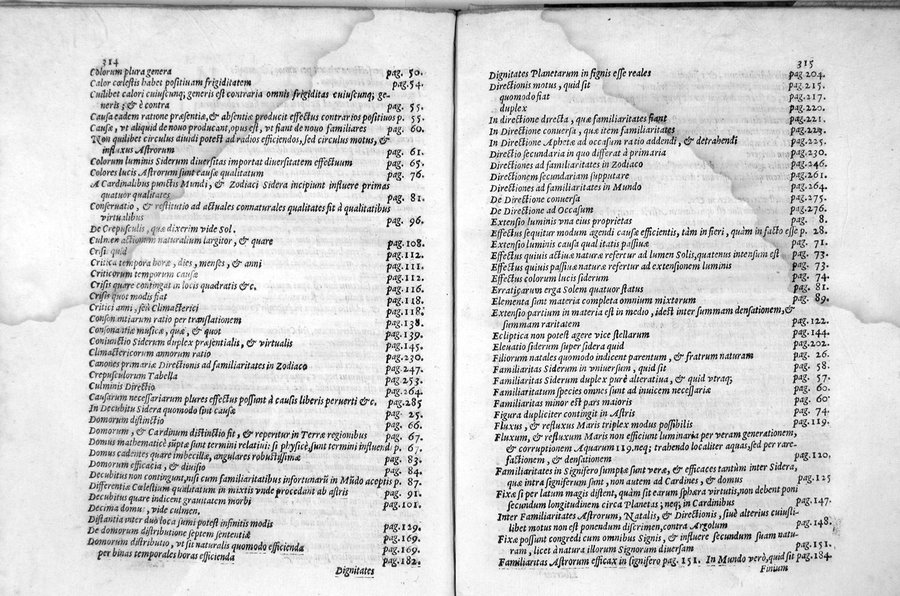 314
Colorum plura genera pag. 50.
Calor cœlestis habet positiuam frigiditatem pag. 54.
Cuilibet calori cuiuscunq; generis est contraria omnis frigiditas cuiuscunq; ge-
neris; & è contra pag. 55.
Causa eadem ratione præsentiæ, & absentiæ producit effectus contrarios positiuos p. 55.
Causæ, vt aliquid de nouo producant, opus est, vt fiant de nouo familiares pag. 60.
Non quilibet circulus diuidi potest ad radios efficiendos, sed circulus motus, &
influxus Astrorum pag. 61.
Colorum luminis Siderum diuersitas importat diuersitatem effectuum pag. 65.
Colores lucis Astrorum sunt causæ qualitatum pag. 76.
A Cardinalibus punctis Mundi, & Zodiaci Sidera incipiunt influere primas
quatuor qualitates pag. 81.
Conseruatio, & restitutio ad actuales connaturales qualitates fit à qualitatibus
virtualibus pag. 96.
De Crepusculis, quæ dixerim vide Sol.
Culmen actionum naturalium largitor, & quare pag. 108.
Crisi quid pag. 112.
Critica tempora horæ, dies, menses, & anni pag. 111.
Criticorum temporum causæ pag. 112.
Crisis quare contingat in locis quadratis &c. pag. 116.
Crisis quot modis fiat pag. 118.
Critici anni, seù Climacterici pag. 118.
Consonantiarum ratio per translationem pag. 138.
Consonantiæ musicæ, quæ, & quot pag. 139.
Coniunctio Siderum duplex præsentialis, & virtualis pag. 145.
Climactericorum annorum ratio pag. 230.
Canones primariæ Directionis ad familiaritates in Zodiaco pag. 247.
Crepusculorum Tabella pag. 253.
Culminis Directio pag. 264.
Causarum necessariarum plures effectus possunt à causis liberis peruerti &c. pag. 285
In Decubitu Sidera quomodo sint causæ pag. 25.
Domorum distinctio pag. 66.
Domorum, & Cardinum distinctio fit, & reperitur in Terræ regionibus pag. 67.
Domus mathematicè suptæ sunt termini relatiui: si physicè, sunt termini influend p. 67.
Domus cadentes quare imbecillæ, angulares robustissimæ pag. 83.
Domorum efficacia, & diuisio pag. 84.
Decubitus non contingunt, nisi cum familiaritatibus infortunarũ in Mũdo acceptis p. 87.
Differentiæ Cœlestium qualitatum in mixtis vnde procedant ab astris pag. 91.
Decubitus quare indicent grauitatem morbi pag. 101.
Decima domus, vide culmen.
Distantia inter duo loca sumi potest infinitis modis pag. 129.
De domorum distributione septem sententiæ pag. 169.
Domorum distributio, vt sit naturalis quomodo efficienda pag. 169.
per binas temporales horas efficienda pag. 182.
Dignitates
315
Dignitates Planetarum in signis esse reales pag. 204.
Directionis motus, quid sit pag. 215.
quomodo fiat pag. 217.
duplex pag. 220.
In directione directa, quæ familiaritates fiant pag. 221.
In Directione conuersa, quæ item familiaritates pag. 223.
In Directione Aphetæ ad occasum ratio addendi, & detrahendi pag. 225.
Directio secundaria in quo differat à primaria pag. 230.
Directiones ad familiaritates in Zodiaco pag. 246.
Directionem secundariam supputare pag. 261.
Directiones ad familiaritates in Mundo pag. 264.
De Directione conuersa pag. 275.
De Directione ad Occasum pag. 276.
Extensio luminis vna eius proprietas pag. 8.
Effectus sequitur modum agendi causæ efficientis, tàm in fieri, quàm in facto esse p. 28.
Extensio luminis causa qualitatis passiuæ pag. 71.
Effectus quiuis actiuæ naturæ refertur ad lumen Solis, quatenus intensum est pag. 73.
Effectus quiuis passiuæ naturæ refertur ad extensionem luminis pag. 73.
Effectus colorum lucis siderum pag. 74.
Erraticarum erga Solem quatuor status pag. 81.
Elementa sunt materia completa omnium mixtorum pag. 89.
Extensio partium in materia est in medio, idest inter summam densationem, &
summam raritatem pag. 122.
Ecliptica non potest agere vice stellarum pag. 144.
Eleuatio siderum super sidera quid pag. 202.
Filiorum natales quomodo indicent parentum, & fratrum naturam pag. 26.
Familiaritas Siderum in vniuersum, quid sit pag. 58.
Familiaritas Siderum duplex purè alteratiua, & quid vtraq; pag. 57.
Familiaritatum species omnes sunt ad inuicem necessariæ pag. 60.
Familiaritas minor est pars maioris pag. 60
Figura dupliciter contingit in Astris pag. 74.
Fluxus, & refluxus Maris triplex modus possibilis pag. 119.
Fluxum, & refluxum Maris non efficiunt luminaria per veram generationem,
& corruptionem Aquarum 119. neq; trahendo localiter aquas, sed per rare-
factionem, & densationem pag. 120.
Familiaritates in Signifero sumptæ sunt veræ, & efficaces tantùm inter Sidera,
quæ intra signiferum sunt, non autem ad Cardines, & domus pag. 125
Fixæ si per latum magis distent, quàm sit earum sphæra virtutis, non debent poni
secundum longitudinem circa Planetas; neq; in Cardinibus pag. 147.
Inter Familiaritates Astrorum, Natalis, & Directionis, siuè alterius cuiusli-
libet motus non est ponendum discrimen, contra Argolum pag. 148.
Fixæ possunt congredi cum omnibus Signis, & influere secundum suam natu-
ram, licet à natura illorum Signorum diuersam pag. 151.
Familiaritas Astrorum efficax in signifero pag. 151. In Mundo verò, quid sit pag. 184.
Finium